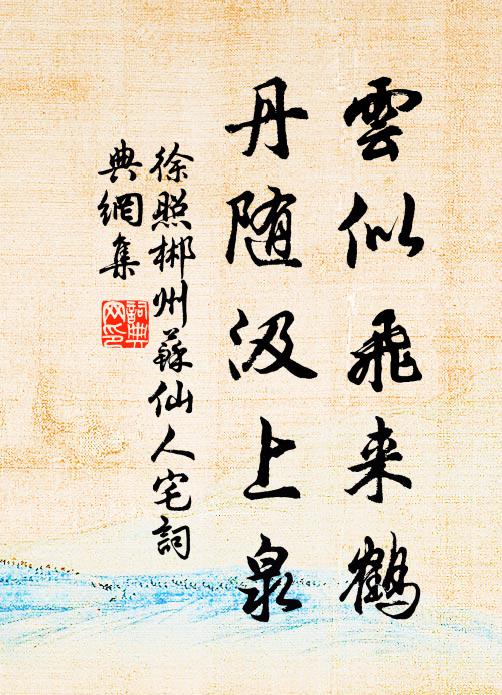 雲似飛来鹤
丹随汲上泉
徐照郴州蘇仙人宅詞
典網集
詞典
网印